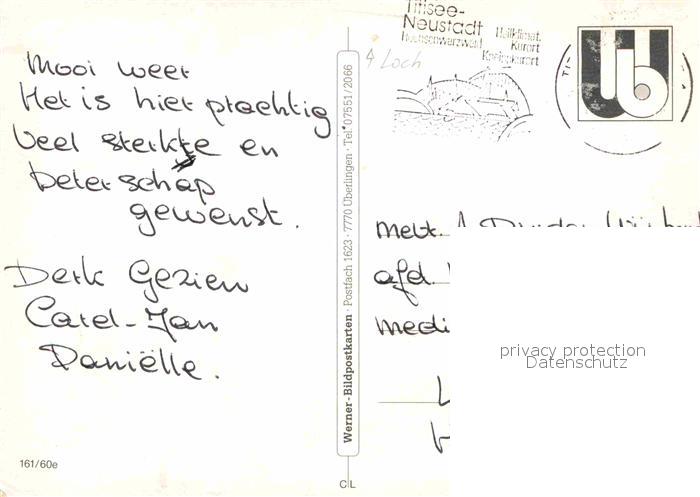 Mooi weer
Het is hier prachtig
Veel sterkte en
beterschap
gewenst.
Derk Gezien
Carel-Jan
Daniëlle.
161/60e
Werner-Bildpostkarten · Postfach 1623 · 7770 Überlingen · Tel. 07551/2066
CL
Titisee-
Neustadt
Hochschwarzwald
Heilklimat.
Kurort
Kneippkurort
Loch
mevr. A
afd.
medi
privacy protection
Datenschutz